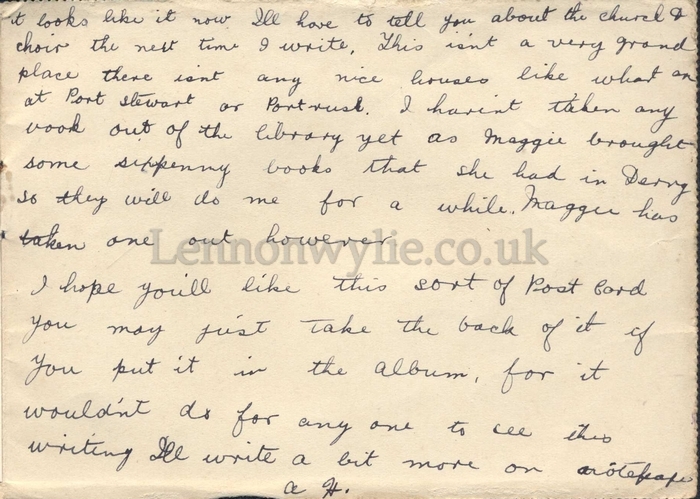 it looks like it now I'll have to tell you about the church &
choir the next time I write. This isn't a very grand
place there isnt any nice houses like what an
at Port Stewart or Portrush. I havint taken any
book out of the library yet as Maggie brought
some sixpenny books that she had in Derry
so they will do me for a while. Maggie has
taken one out however
Lennonwylie.co.uk
I hope you'll like this sort of Post Card
You may just take the back of it if
You put it in the album, for it
would'nt do for any one to see this
writing I'll write a bit more on notepape
a H.